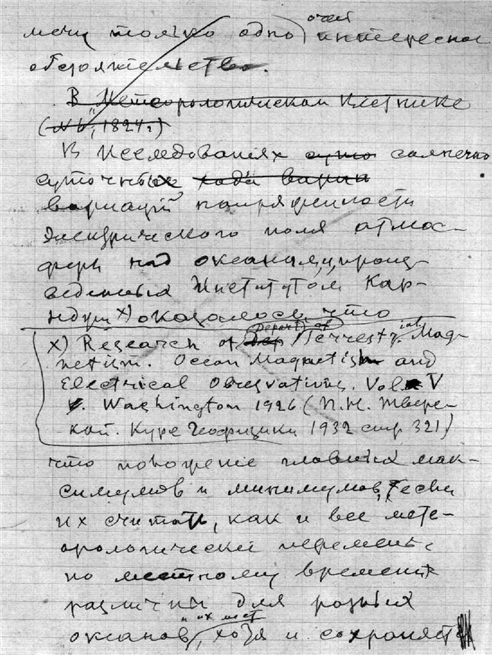 мечу только одно очень интересное
обстоятельство.
В Метеорологическом Вестнике
(№ 6, 1924 г)
В исследованиях суто солнечно
суточных хода вариа
вариаций напряженности
электрического поля атмос-
феры над океанами, произ-
веденных Институтом Кар-
неджи x) оказалось, что
x) Research of Dep Departt of Terrestrial Mag-
netism. Ocean Magnetism and
Electrical Observations. Vol V
Washington 1926 (П.Н. Твер-
ской. Курс Геофизики 1932 стр 321)
что положение главных мак-
симумов и минимумов, если
их считать, как и все мете-
орологические перемены,
по местному времени
различны для разных
океанов, хотя и сохраняет